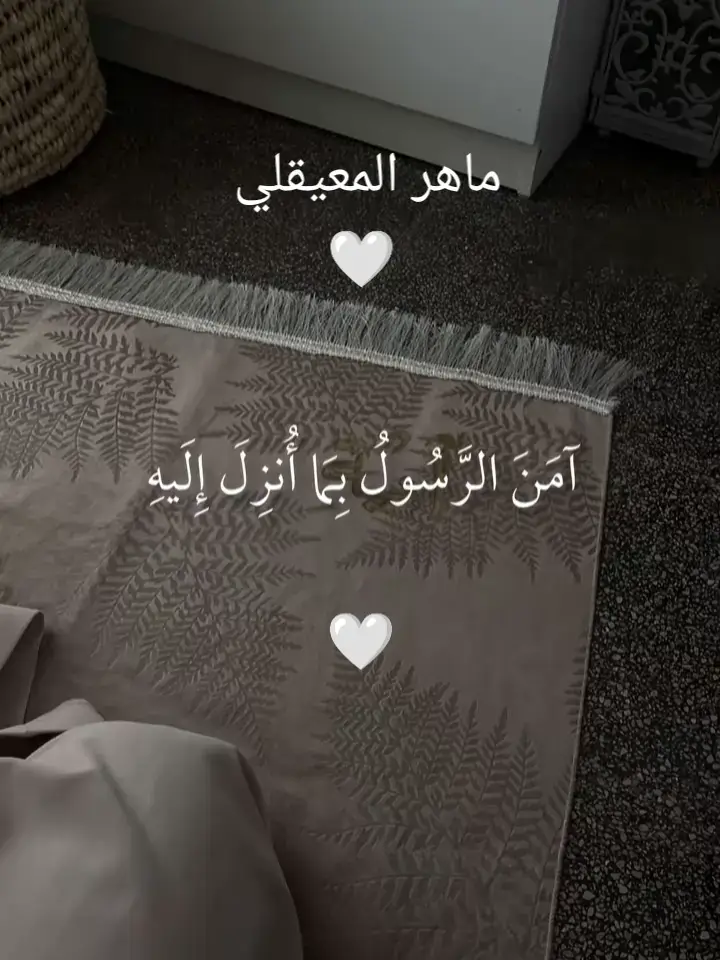 ماهر المعيقلي
🤍
آمَنَ الرَّسُولُ بِمَا أُنزِلَ إِلَيهِ
🤍